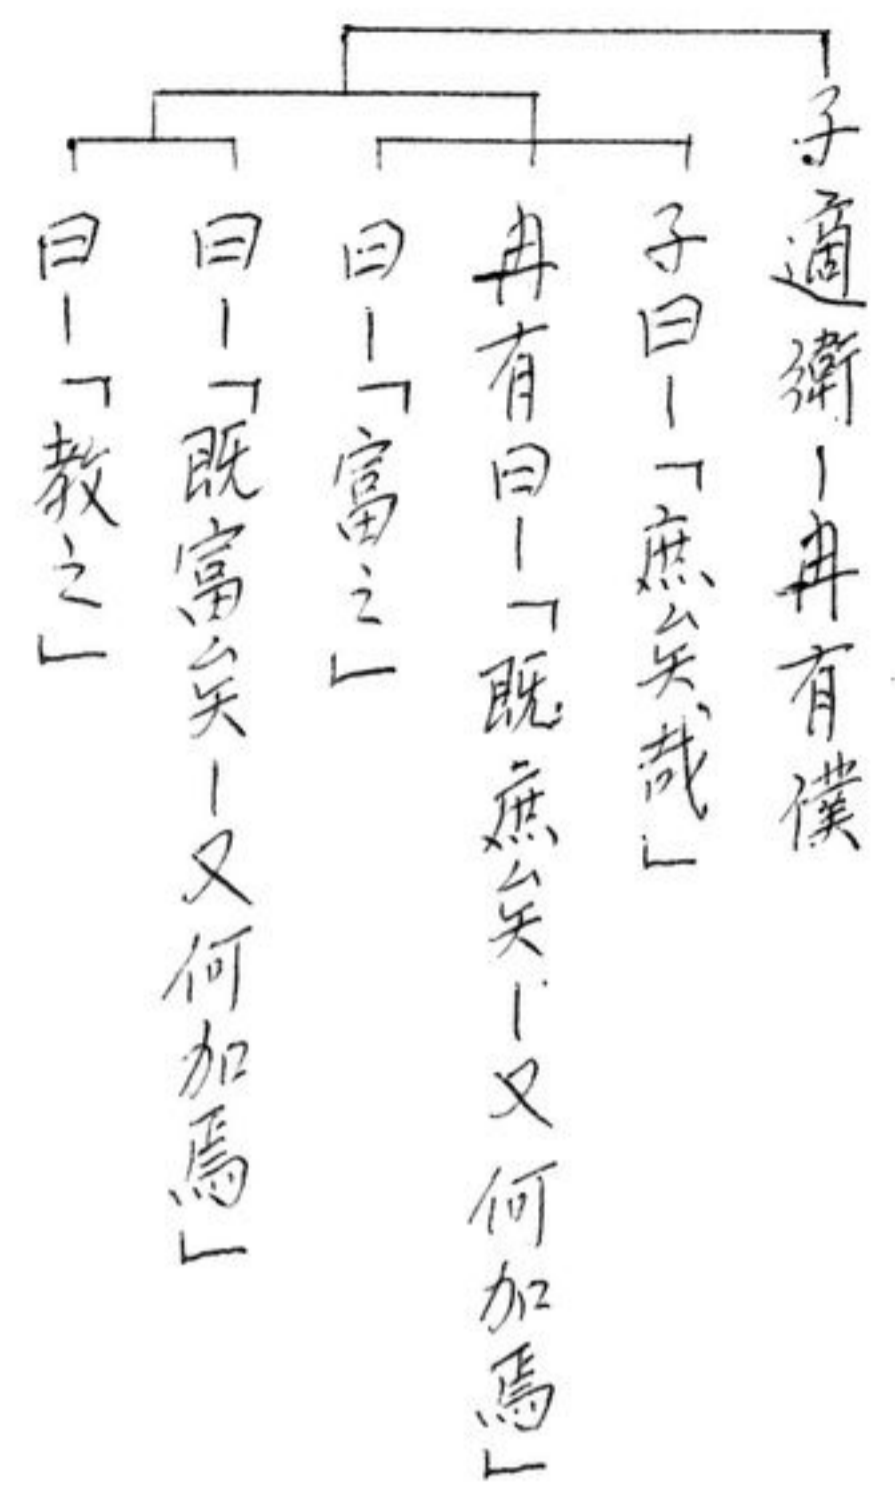 子適衛－冉有僕
子曰－「庶矣哉」
冉有曰－「既庶矣－又何加焉」
曰－「富之」
曰－「既富矣－又何加焉」
曰－「教之」